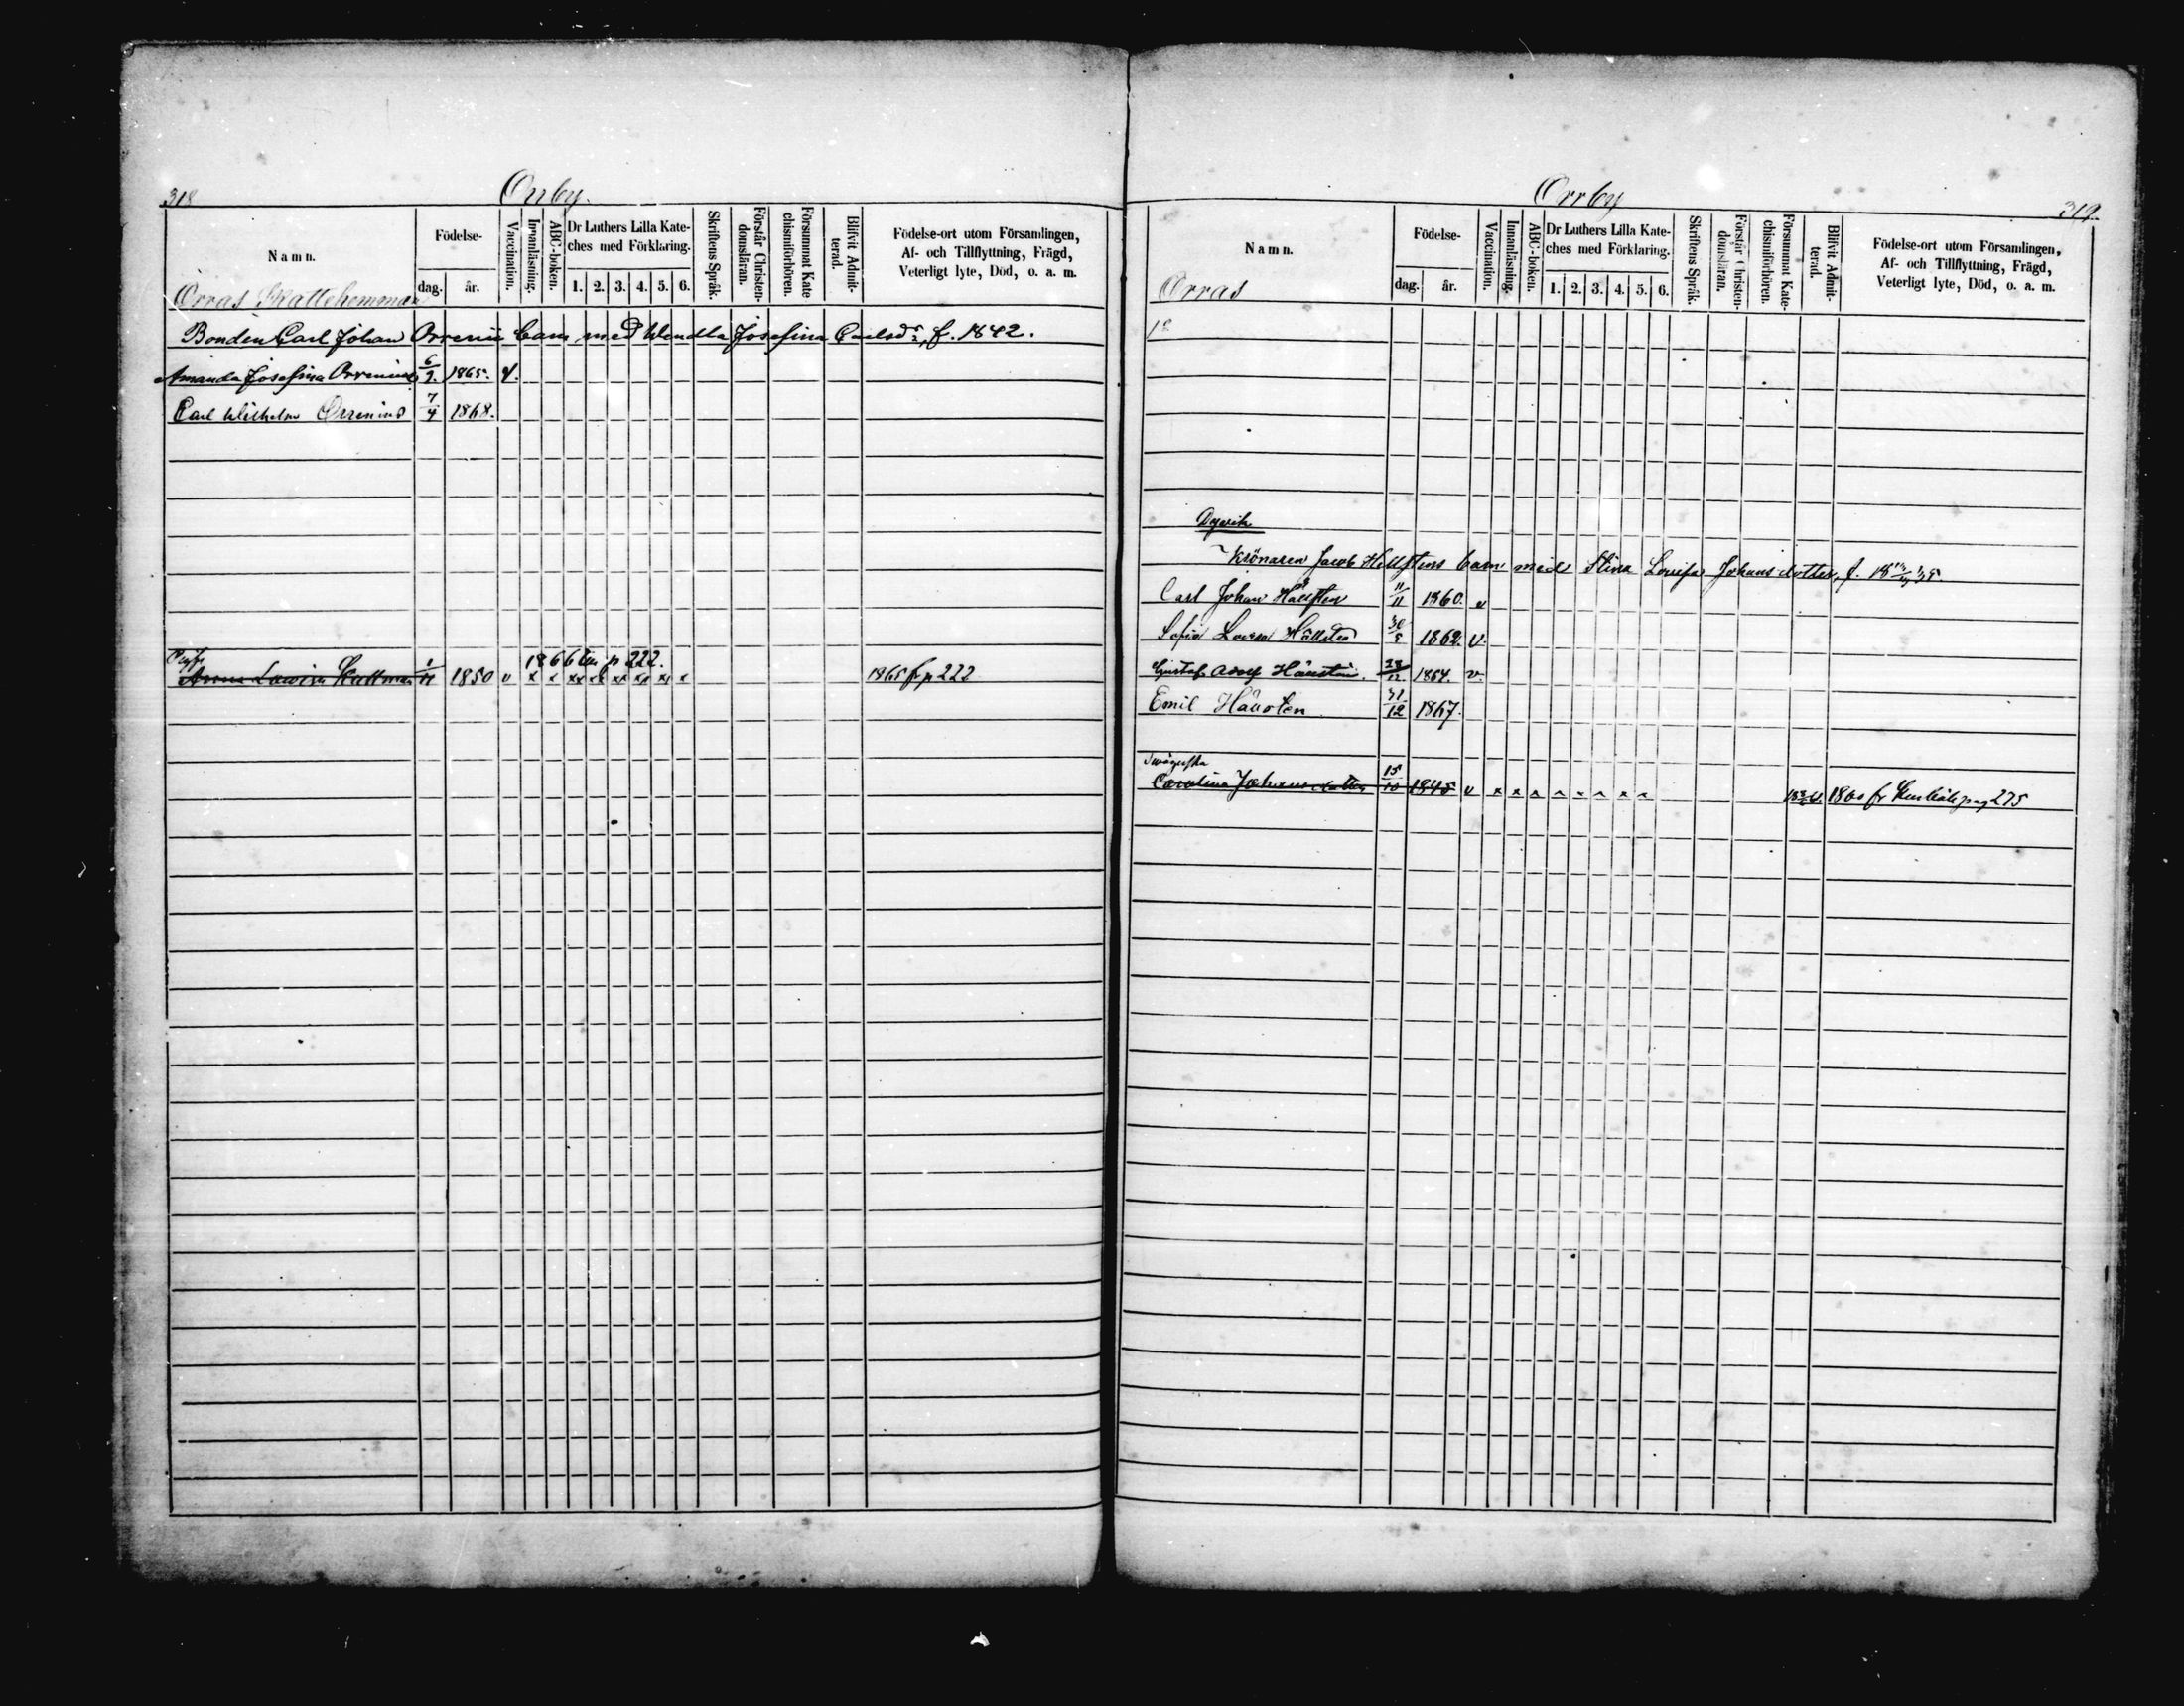 318
Orrby.
Namn.
Födelse-
dag.
år.
Vaccination.
Innanläsning.
ABC-boken.
Dr Luthers Lilla Kate-
ches med Förklaring.
1. 2. 3. 4. 5. 6.
Skriftens Språk.
Förstår Christen-
domsläran.
Försummat Kate
chismiförhören.
Blifvit Admit-
terad.
Födelse-ort utom Församlingen,
Af- och Tillflyttning, Frägd,
Veterligt lyte, Död, o. a. m.
Orras Skattehemman
Bonden Carl Johan Orrenii barn med Wendla Josefina Carlsdr, f. 1842.
Amanda Josefina Orrenius 6/9 1865. v.
Carl Wilhelm Orrenius 7/4 1868.
1866 till p 222.
Anna Lovisa Skattman 1850 v x x xx xx xx xx xx x 1865 fr p 222
Orrby
319.
Namn.
Födelse-
dag.
år.
Vaccination.
Innanläsning.
ABC-boken.
Dr Luthers Lilla Kate-
ches med Förklaring.
1. 2. 3. 4. 5. 6.
Skriftens Språk.
Förstår Christen-
domsläran.
Försummat Kate-
chismiförhören.
Blifvit Admit-
terad.
Födelse-ort utom Församlingen,
Af- och Tillflyttning, Frägd,
Veterligt lyte, Död, o. a. m.
Orras
Dyvik
Krönaren Jacob Hellstens barn med Stina Lovisa Johansdotter, f.
Carl Johan Hällsten 11/11 1860. v
Sofia Lovisa Hällsten 30/5 1862. v.
Gustaf Adolf Hällsten. 23/12 1864. v.
Emil Hällsten 31/12 1867.
Carolina Johansdotter 15/10 1845 v x x x x x x x x 1860 fr pag 275